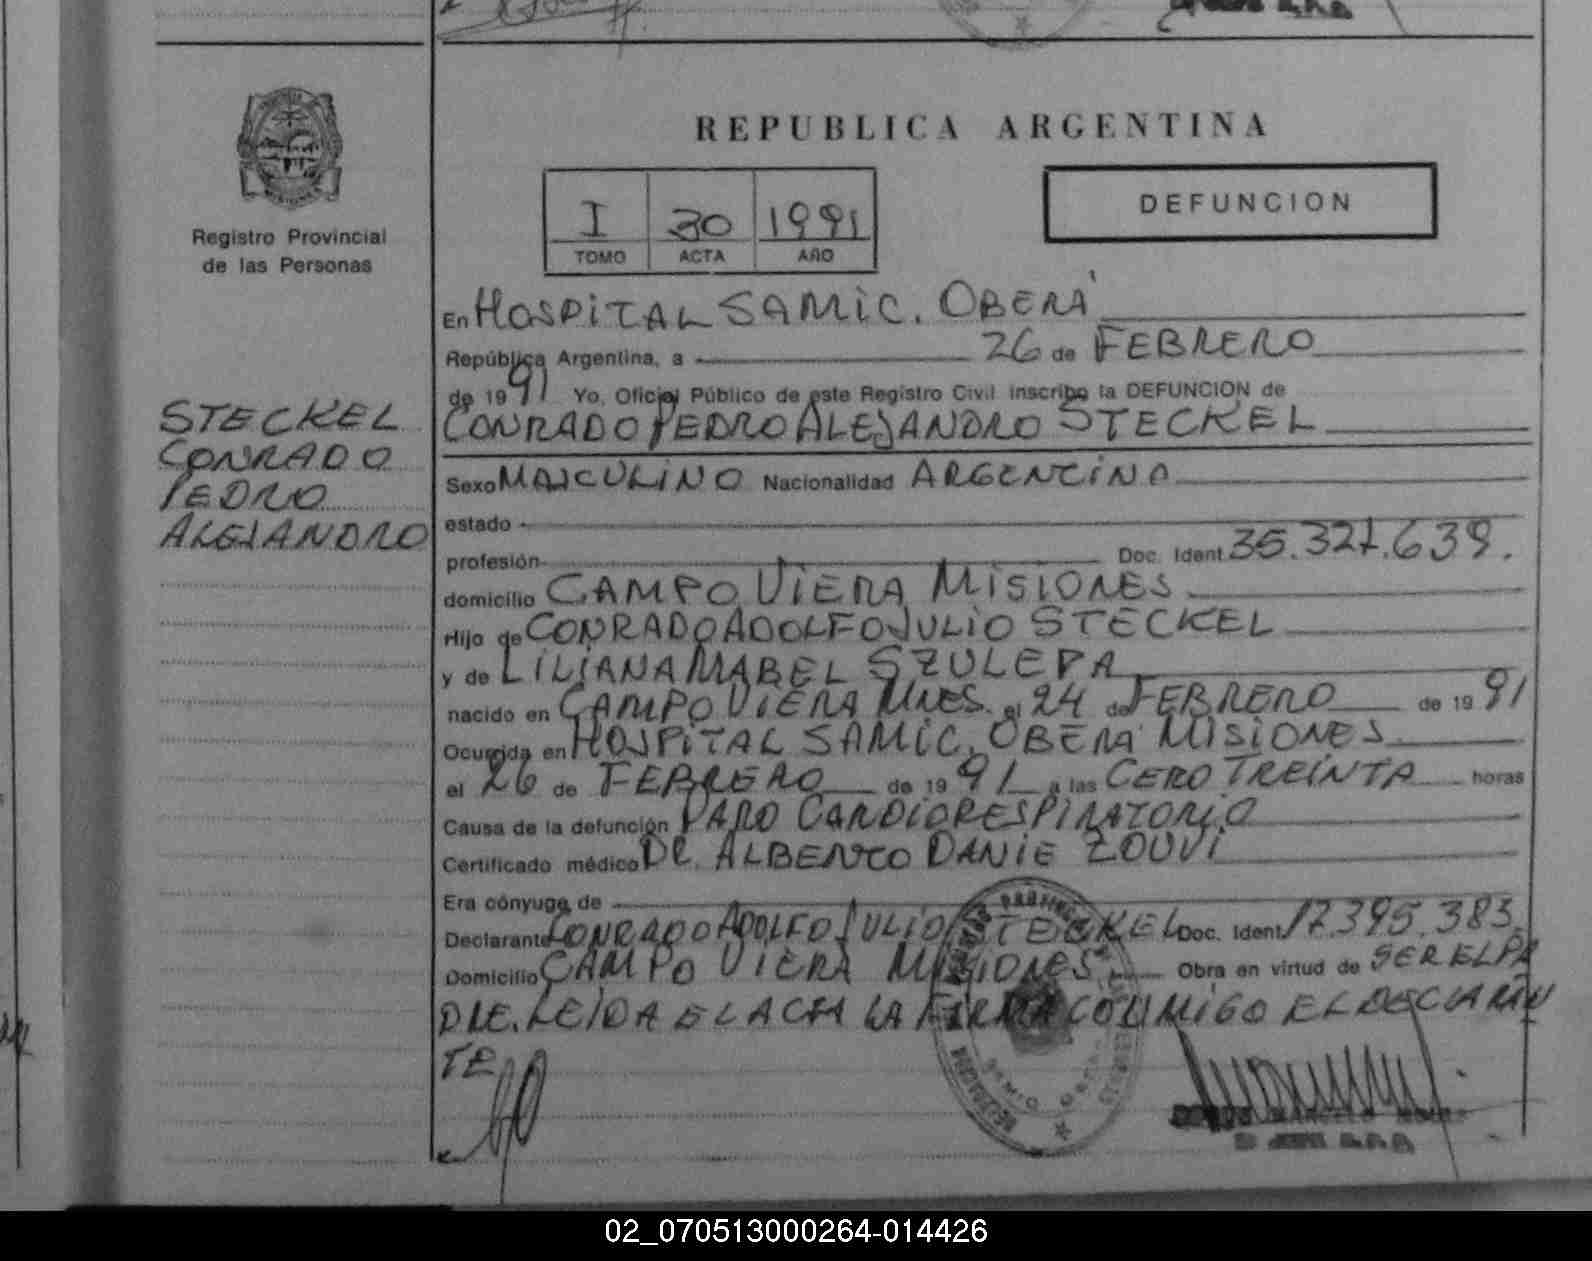 REPUBLICA ARGENTINA
I 30 1991
TOMO ACTA AÑO
DEFUNCION
Registro Provincial
de las Personas
STECKEL
CONRADO
PEDRO
ALEJANDRO
En HOSPITAL SAMIC. OBERÁ
República Argentina, a 26 de FEBRERO
de 1991 Yo, Oficial Público de este Registro Civil inscribo la DEFUNCION de
CONRADO PEDRO ALEJANDRO STECKEL
Sexo MASCULINO Nacionalidad ARGENTINA
estado
profesión Doc. Ident. 35.327.639.
domicilio CAMPO VIERA MISIONES
Hijo de CONRADO ADOLFO JULIO STECKEL
y de LILIANA MABEL SZULEPA
nacido en CAMPO VIERA MNES. el 24 de FEBRERO de 1991
Ocurrida en HOSPITAL SAMIC. OBERA MISIONES
el 26 de FEBRERO de 1991 a las CERO TREINTA horas
Causa de la defunción PARO CARDIORESPIRATORIO
Certificado médico DR. ALBERTO DANIE ZOUVI
Era cónyuge de
Declarante CONRADO ADOLFO JULIO STECKEL Doc. Ident. 17.395.383.
Domicilio CAMPO VIERA MISIONES Obra en virtud de SER EL PA
DRE. LEIDA EL ACTA LA FIRMA CONMIGO EL DECLARAN
TE
02_070513000264-014426